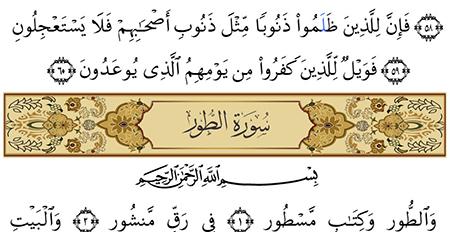 ﴿٥٨﴾ فَإِنَّ لِلَّذِينَ ظَلَمُوا۟ ذَنُوبًا مِّثْلَ ذَنُوبِ أَصْحَٰبِهِمْ فَلَا يَسْتَعْجِلُونِ
﴿٥٩﴾ فَوَيْلٌ لِّلَّذِينَ كَفَرُوا۟ مِن يَوْمِهِمُ ٱلَّذِى يُوعَدُونَ ﴿٦٠﴾
سُورَةُ الطُّورِ
بِسْمِ ٱللَّهِ ٱلرَّحْمَٰنِ ٱلرَّحِيمِ
وَٱلطُّورِ وَكِتَٰبٍ مَّسْطُورٍ ﴿١﴾ فِى رَقٍّ مَّنشُورٍ ﴿٣﴾ وَٱلْبَيْتِ